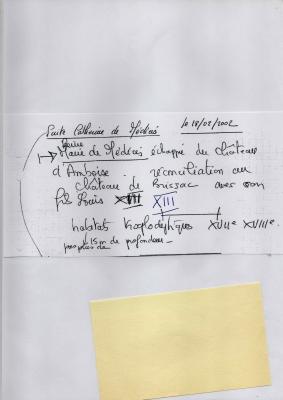 Suite Catherine de Médicis le 18/02/2002
Reine
Marie de Médicis échappé du château
d'Amboise. réconciliation au
château de Brissac avec son
fils Louis XIII
habitats troglodytiques XVIIe XVIIIe
plus de 15m de profondeur